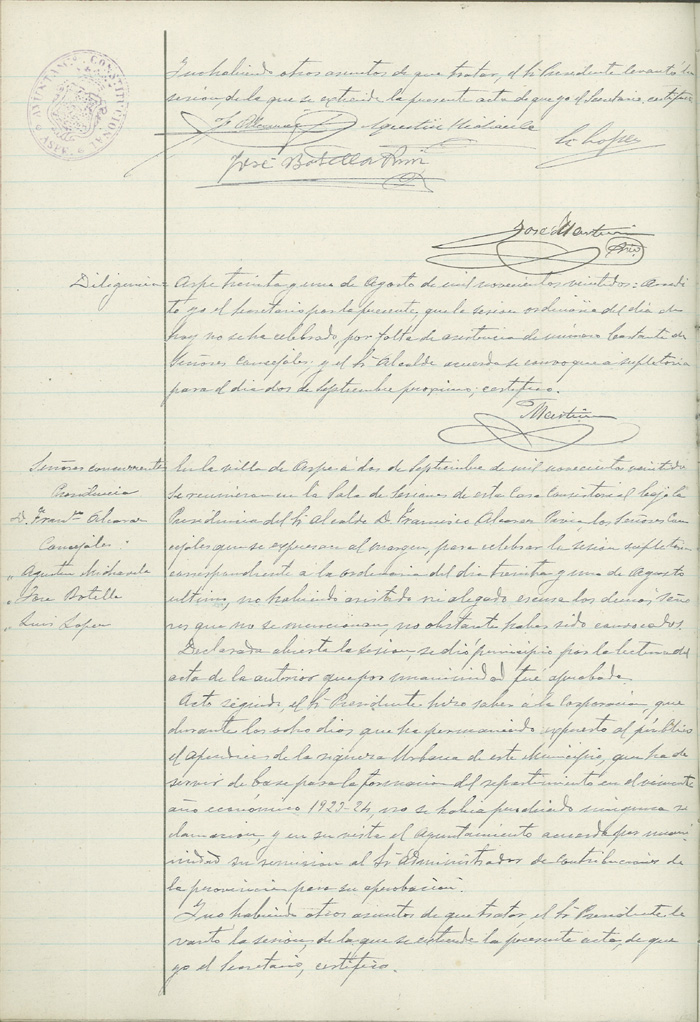 AYUNTAMIENTO CONSTITUCIONAL
ASPE
Y no habiendo otros asuntos de que tratar, el Sr. Presidente levantó la
sesión, de la que se extiende la presente acta de que yo el Secretario, certifico.
F. Alcaraz Agustín Mirambell Luis Lopez
José Botella
José Martín
Srio.
Diligencia = Aspe treinta y uno de Agosto de mil novecientos veintidos: Acredi-
to yo el Secretario por la presente, que la sesion ordinaria del dia de
hoy no se ha celebrado, por falta de asistencia de número bastante de
Señores Concejales; y el Sr. Alcalde acuerda se convoque a supletoria
para el dia dos de Septiembre proximo, certifico.
Martín
Señores concurrentes
Presidencia
D. Franco. Alcaraz
Concejales:
" Agustin
" Jose Botella
" Luis Lopez
En la villa de Aspe á dos de Septiembre de mil novecientos veintidos
Se reunieron en la Sala de Sesiones de esta Casa Consistorial bajo la
Presidencia del Sr. Alcalde D. Francisco Alcaraz los Señores Con-
cejales que se expresan al margen, para celebrar la sesión supletoria
correspondiente a la ordinaria del dia treinta y uno de Agosto
ultimo, no habiendo asistido ni alegado escusa los demás Seño-
res que no se mencionan, no obstante haber sido convocados.
Declarada abierta la sesion, se dió principio por la lectura del
acta de la anterior que por unanimidad fué aprobada.
Acto seguido, el Sr. Presidente hizo saber á la Corporación, que
durante los ocho dias que ha permanecido expuesto al público
el apendice de la riqueza Urbana de este Municipio, que ha de
servir de base para la formacion del repartimiento en el
año económico 1923-24, no se habia producido ninguna re-
clamacion, y en su vista el Ayuntamiento acuerda por unani-
midad su remision al Sr. Administrador de Contribuciones de
la provincia para su aprobación.
Y no habiendo otros asuntos de que tratar, el Sr. Presidente le-
vantó la sesión, de la que se extiende la presente acta, de que
yo el Secretario, certifico.